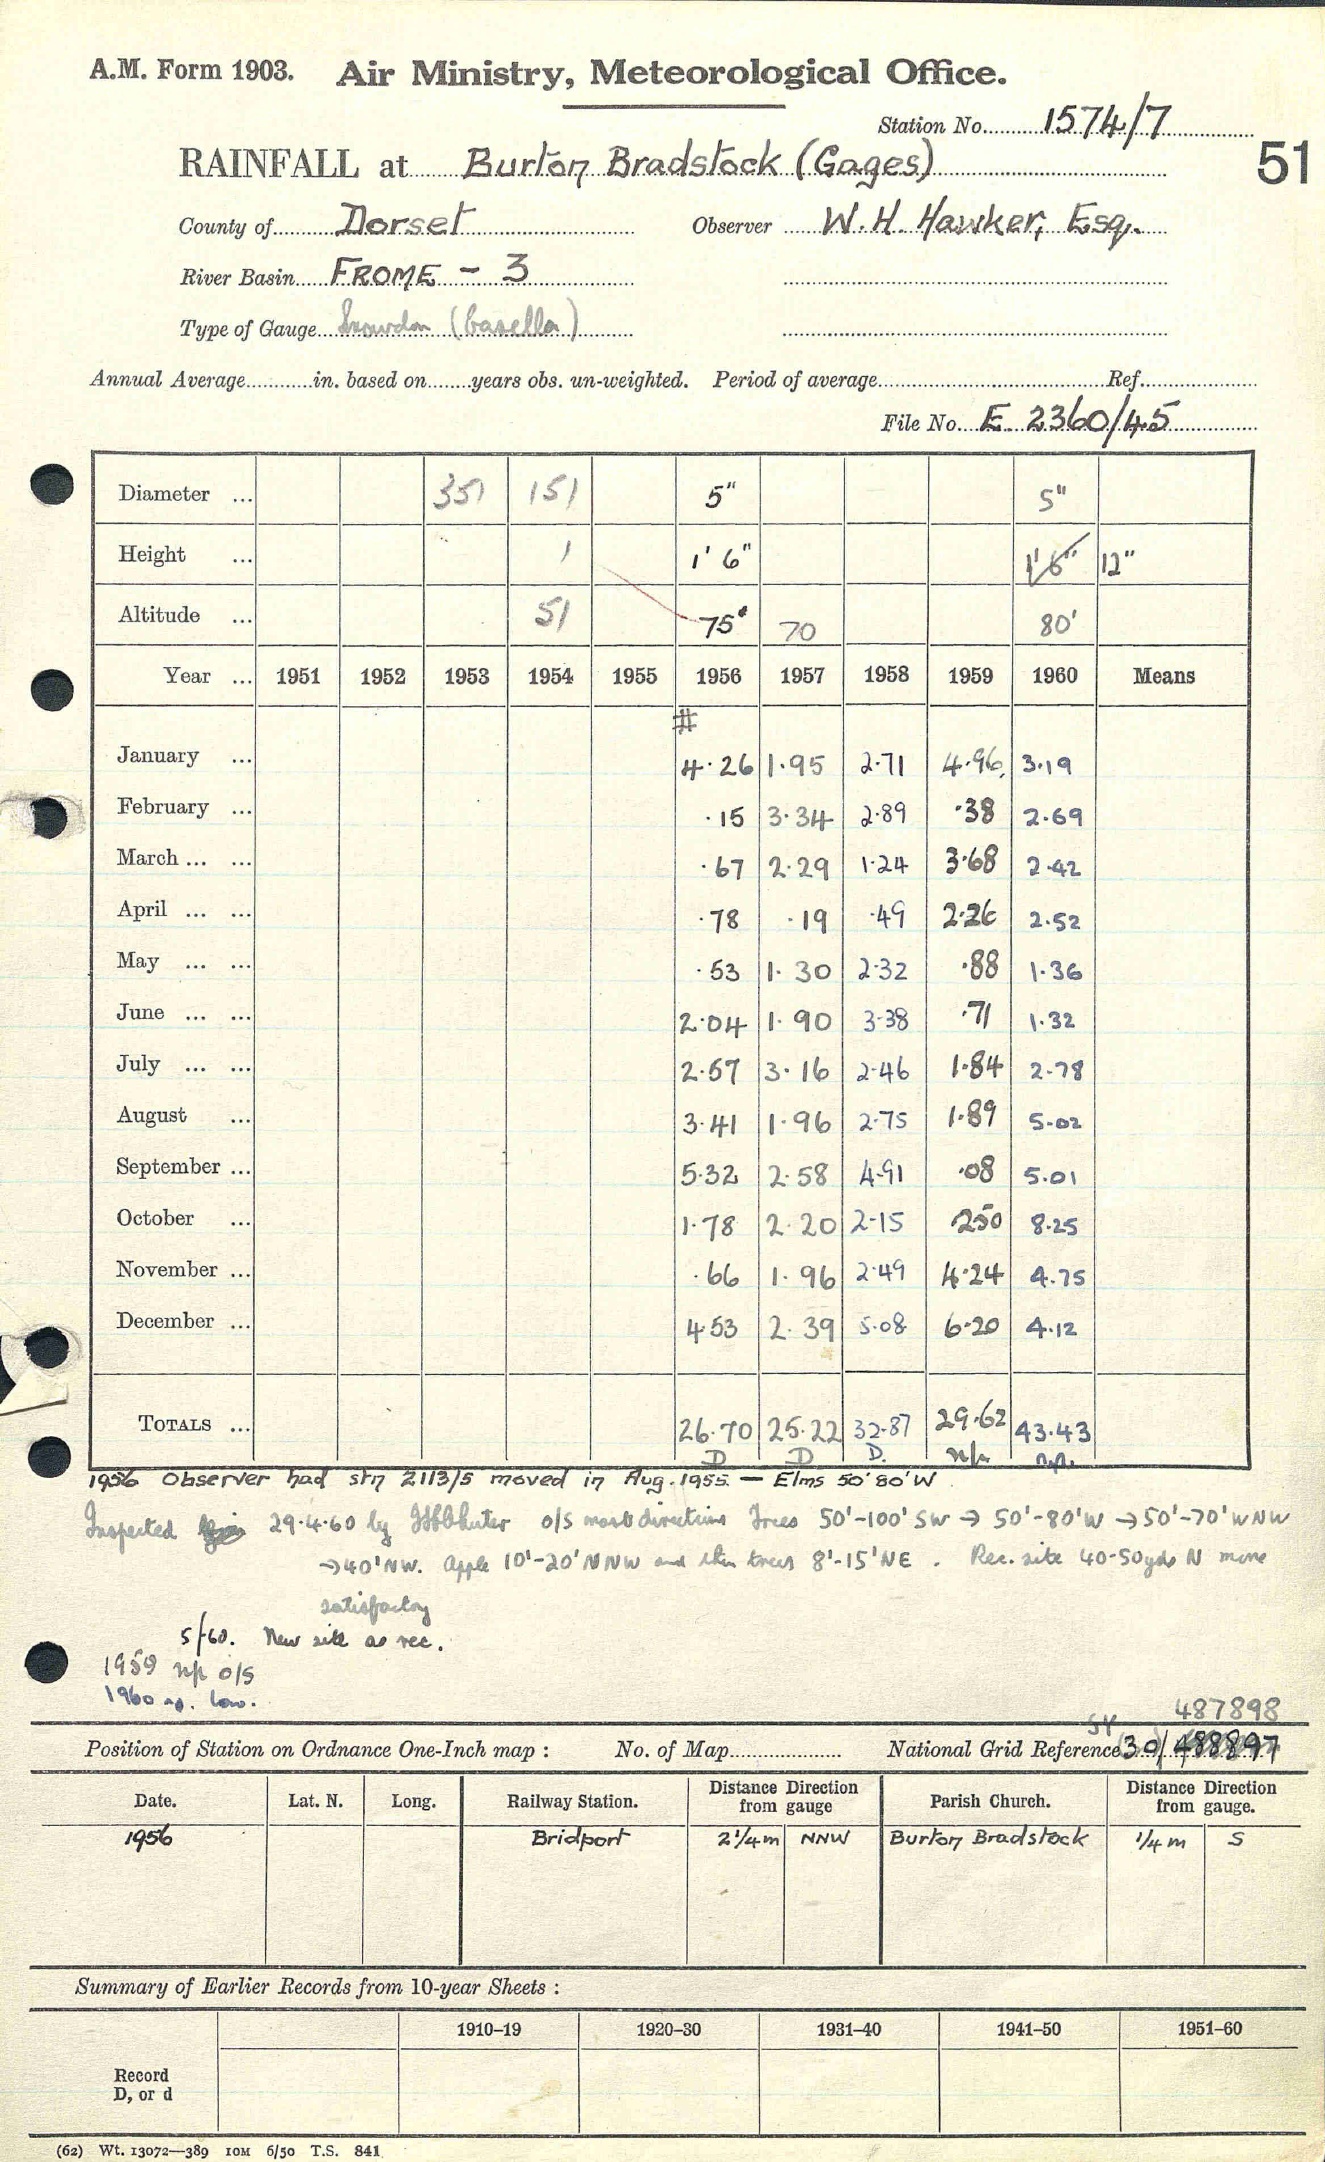 A.M. Form 1903. Air Ministry, Meteorological Office.
Station No. 1574/7
51
RAINFALL at Burton Bradstock (Gages)
County of Dorset Observer W.H. Hawker, Esq.
River Basin FROME - 3
Type of Gauge Snowdon (Casella)
Annual Average in. based on years obs. un-weighted. Period of average Ref.
File No. E 2360/45
Diameter ... 351 151 5" 5"
Height ... 1 1' 6" 1'6" 12"
Altitude ... 51 75' 70 80'
Year ... 1951 1952 1953 1954 1955 1956 1957 1958 1959 1960 Means
#
January ... 4.26 1.95 2.71 4.96 3.19
February ... .15 3.34 2.89 .38 2.69
March ... ... .67 2.29 1.24 3.68 2.42
April ... ... .78 .19 .49 2.26 2.52
May ... ... .53 1.30 2.32 .88 1.36
June ... ... 2.04 1.90 3.38 .71 1.32
July ... ... 2.57 3.16 2.46 1.84 2.78
August ... 3.41 1.96 2.75 1.89 5.02
September ... 5.32 2.58 4.91 .08 5.01
October ... 1.78 2.20 2.15 2.50 8.25
November ... .66 1.96 2.49 4.24 4.75
December ... 4.53 2.39 5.08 6.20 4.12
TOTALS ... 26.70 25.22 32.87 29.62 43.43
D D D. np np.
1956 Observer had stn 2113/5 moved in Aug. 1955 — Elms 50' 80' W
Inspected 29.4.60 by o/s most directions Trees 50'-100' SW → 50'-80' W → 50'-70' WNW
→ 40' NW. Apple 10'-20' NNW and then trees 8'-15' NE. Rec. site 40-50 yds N more
satisfactory
5/60. New site as rec.
1959 np o/s
1960 np. low.
487898
SY
Position of Station on Ordnance One-Inch map : No. of Map National Grid Reference 30/488897
Date. Lat. N. Long. Railway Station. Distance Direction from gauge Parish Church. Distance Direction from gauge.
1956 Bridport 2 1/4 m NNW Burton Bradstock 1/4 m S
Summary of Earlier Records from 10-year Sheets :
1910–19 1920–30 1931–40 1941–50 1951–60
Record
D, or d
(62) Wt. 13072—389 10M 6/50 T.S. 841